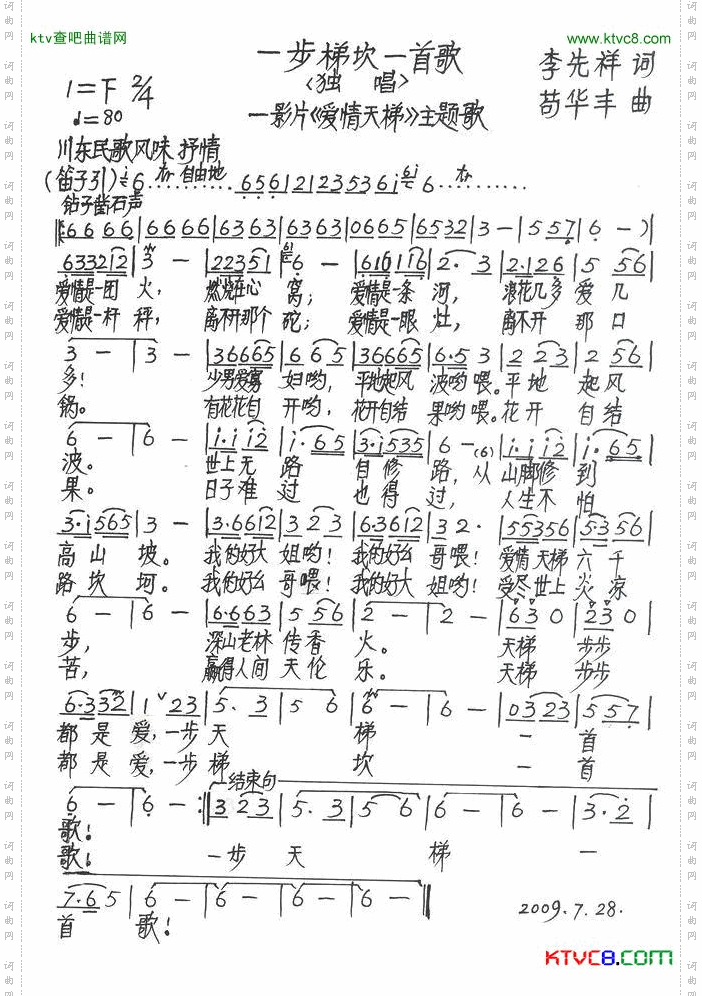 ktv查吧曲谱网
www.ktvc8.com
一步梯坎一首歌
〈独 唱〉
李先祥 词
苟华丰 曲
—影片《爱情天梯》主题歌
1=F 2/4
♩=80
川东民歌风味 抒情
(笛子引) 自由地
钻子凿石声
6 6 6 6 | 6 6 6 6 | 6 3 6 3 | 6 3 6 3 | 0 6 6 5 | 6 5 3 2 | 3 — | 5 5 7 | 6 — )
爱情是一团 火, 燃烧在心 窝; 爱情是一条 河, 浪花几多 爱 几
爱情是一杆 秤, 离不开那个 砣; 爱情是一眼 灶, 离不开 那 口
3 — | 3 — | 3 6 6 6 5 | 6 6 5 | 3 6 6 6 5 | 6·5 3 | 2 2 3 | 2 5 6
多! 少男爱寡 妇哟, 平地起风 波哟喂。平 地 起风
锅。 有花花自 开哟, 花开自结 果哟喂。花 开 自结
波。 世上无 路 自 修 路, 从 山脚修 到
果。 日子难 过 也 得 过, 人生不 怕
高 山 坡。 我的好大 姐哟! 我的好幺 哥喂! 爱情 天梯 六 千
路 坎 坷。 我的好幺 哥喂! 我的好大 姐哟! 受尽 世上 炎 凉
步, 深山老林 传香 火。 天梯 步步
苦, 赢得人间 天伦 乐。 天梯 步步
都 是 爱, 一步 天 梯 一 首
都 是 爱, 一步 梯 坎 一 首
结束句
歌!
歌! 一 步 天 梯 一
7·6 5 | 6 — | 6 — | 6 — | 6 —
首 歌!
2009.7.28.
KTVC8.com
词曲网